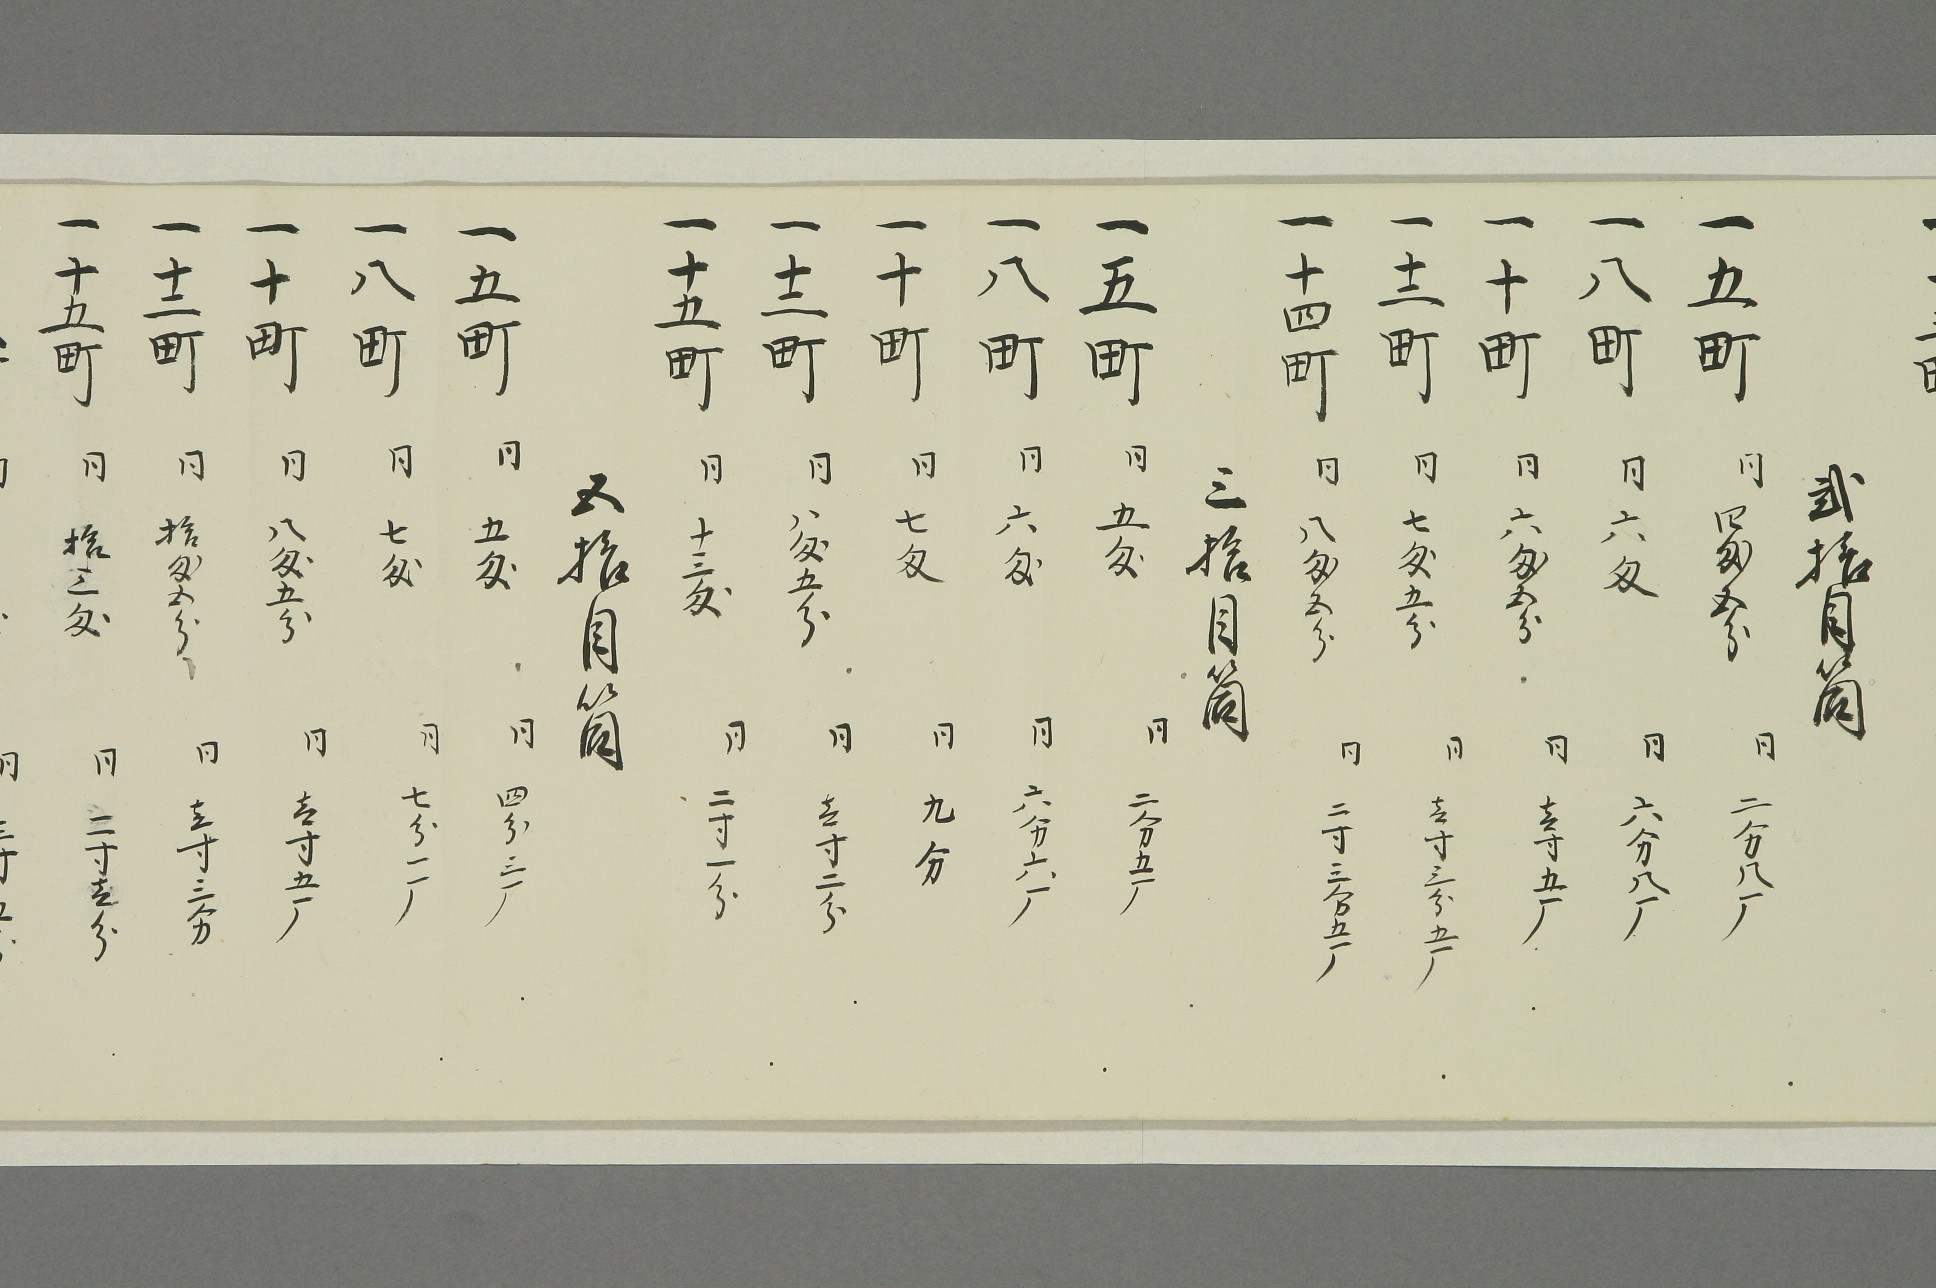 弐拾目筒
一五町 同 四匁五分 同 二分八厂
一八町 同 六匁 同 六分八厂
一十町 同 六匁五分 同 壱寸五厂
一十二町 同 七匁五分 同 壱寸三分五厂
一十四町 同 八匁五分 同 二寸三分五厂
三拾目筒
一五町 同 五匁 同 二分五厂
一八町 同 六匁 同 六分六厂
一十町 同 七匁 同 九分
一十二町 同 八匁五分 同 壱寸二分
一十五町 同 十三匁 同 二寸一分
五拾目筒
一五町 同 五匁 同 四分三厂
一八町 同 七匁 同 七分二厂
一十町 同 八匁五分 同 壱寸五厂
一十二町 同 拾匁五分 同 壱寸三分
一十五町 同 拾三匁 同 二寸壱分